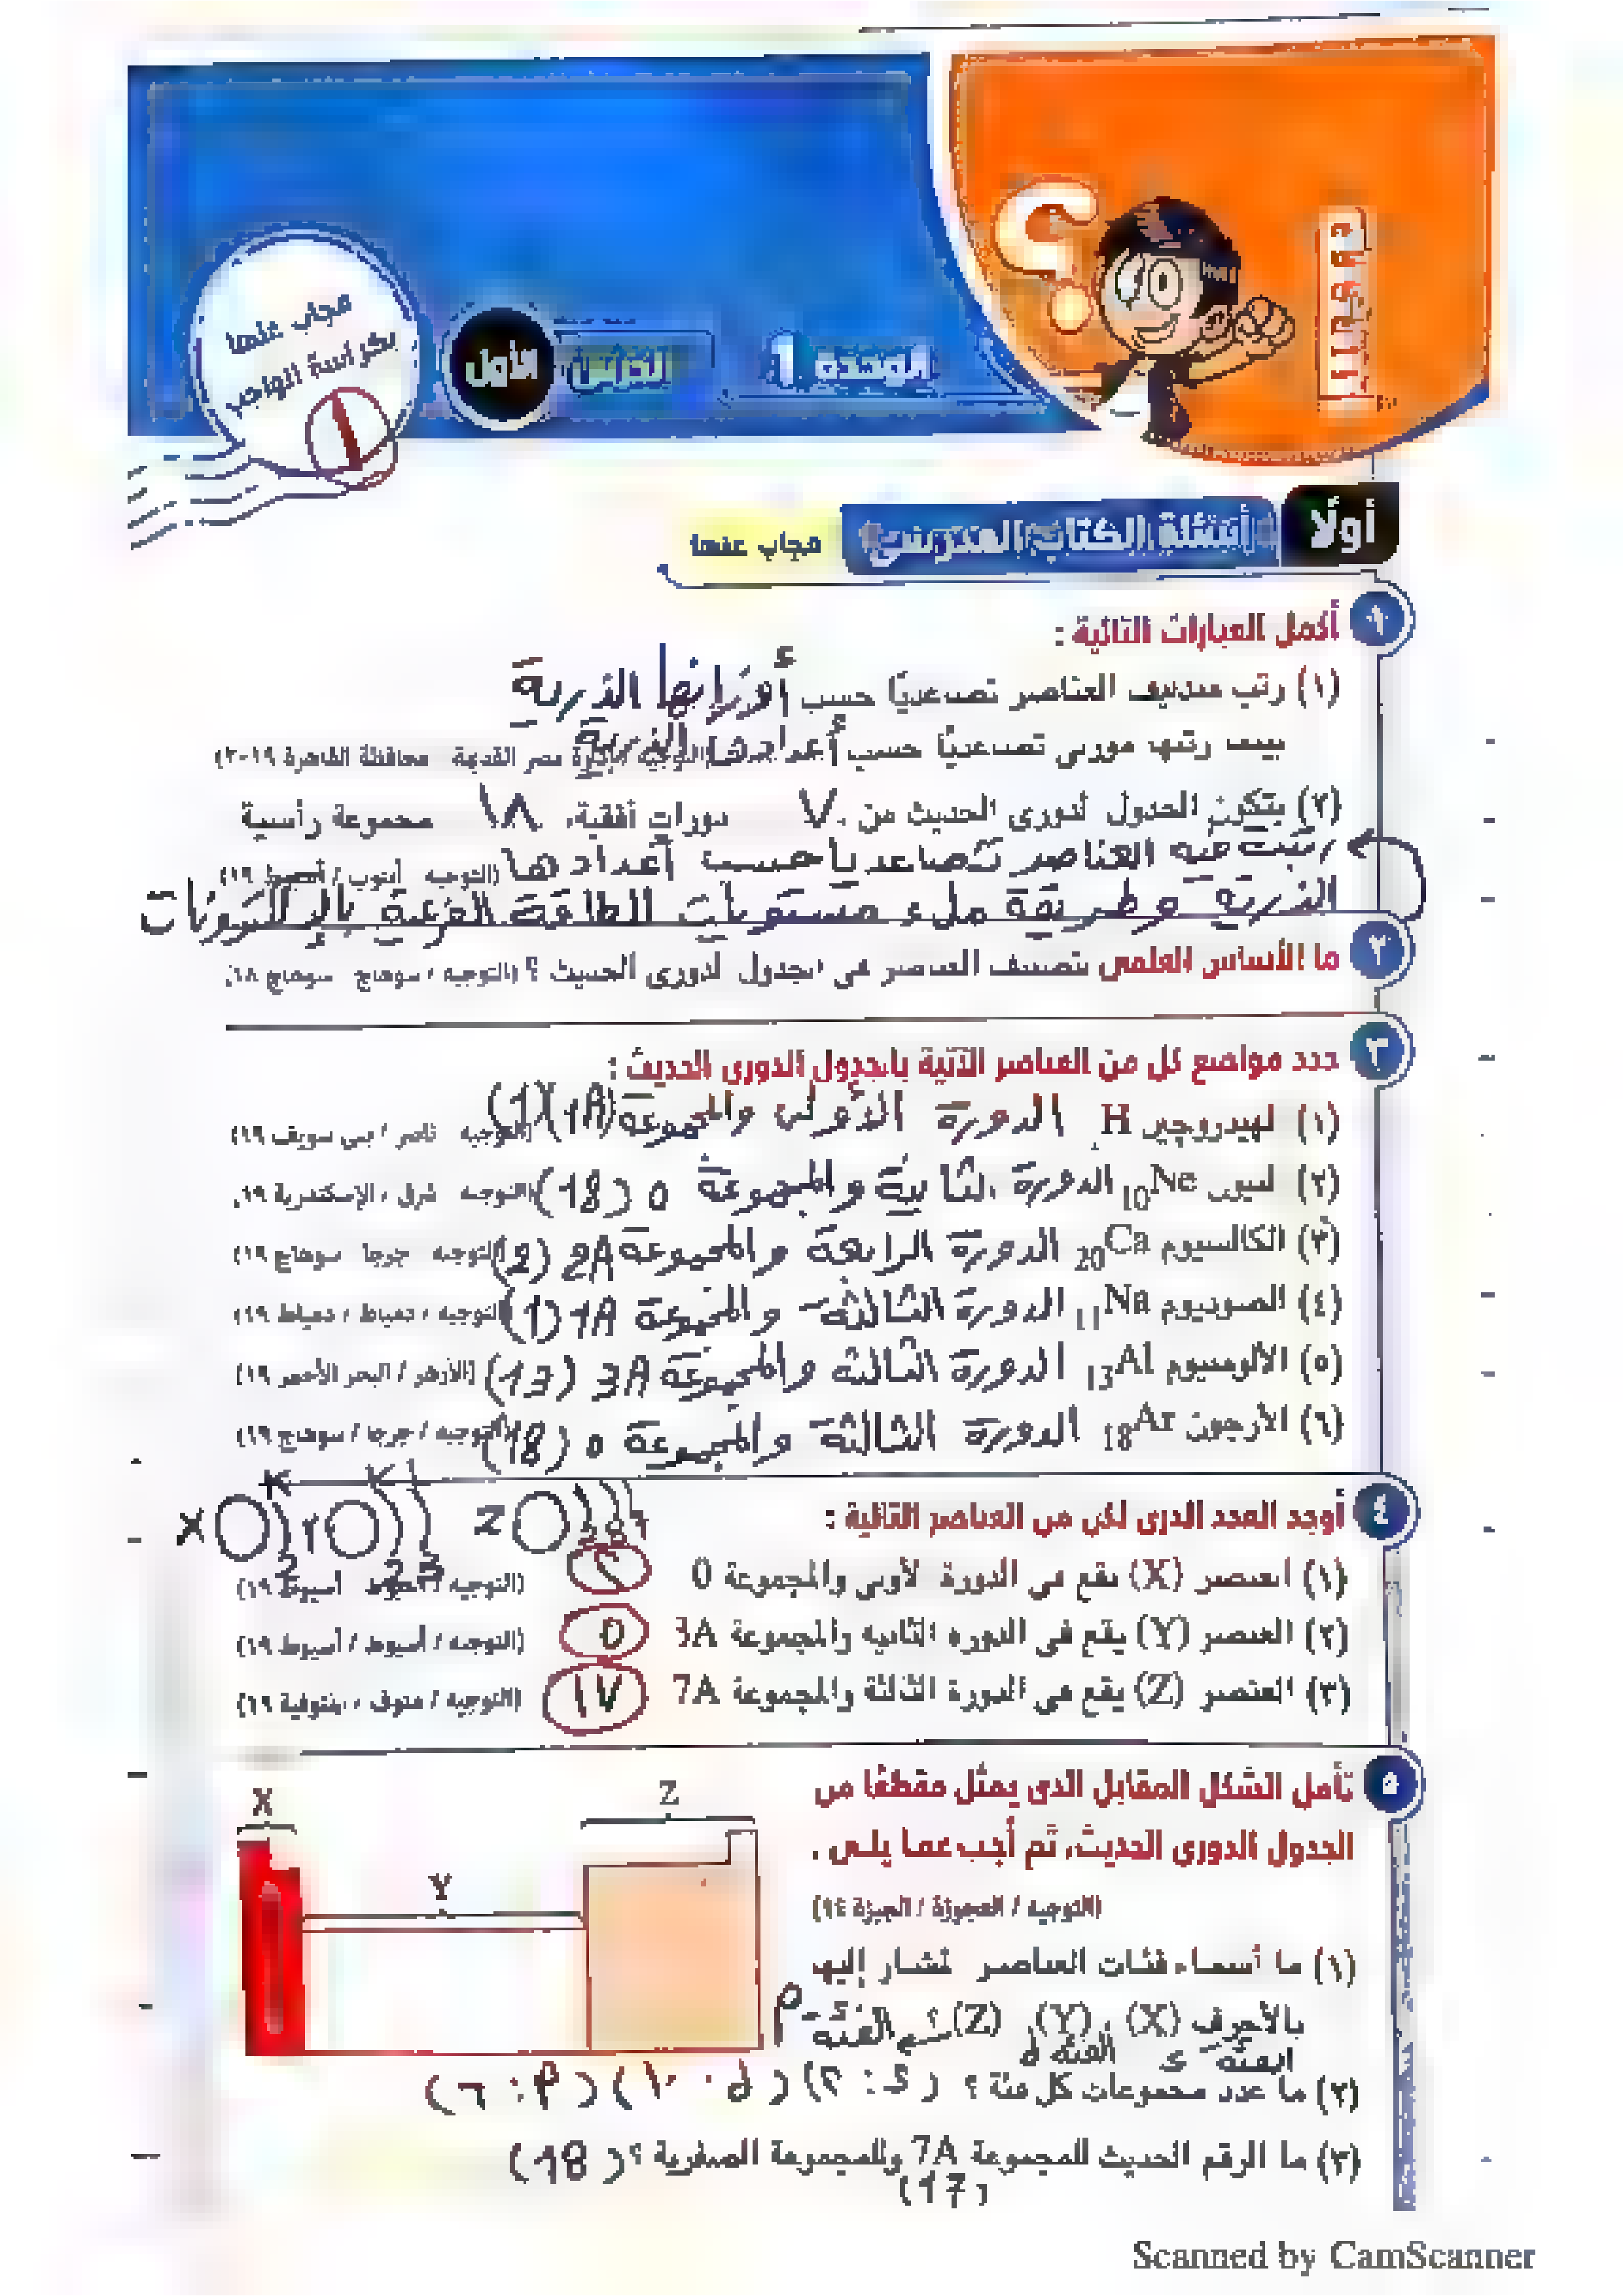 الوحدة 1 الدرس الأول
مجاب عنها
بكراسة الواجب
1
أولًا أسئلة الكتاب المدرسى مجاب عنها
١ أكمل العبارات التالية :
(١) رتب مندليف العناصر تصاعديًا حسب أوزانها الذرية
بينما رتبها موزلى تصاعديًا حسب أعدادها الذرية (التوجيه / إدارة مصر القديمة / محافظة القاهرة ٢٠١٩)
(٢) يتكون الجدول الدورى الحديث من ٧ دورات أفقية، ١٨ مجموعة رأسية
رتبت فيه العناصر تصاعدياً حسب أعدادها (التوجيه / أسيوط ١٩)
الذرية وطريقة ملء مستويات الطاقة الفرعية بالإلكترونات
٢ ما الأساس العلمى لتصنيف العناصر فى الجدول الدورى الحديث ؟ (التوجيه / سوهاج / سوهاج ١٨)
٣ حدد مواضع كل من العناصر الآتية بالجدول الدورى الحديث :
(١) الهيدروچين 1H الدورة الأولى والمجموعة (1A) (1) (التوجيه / ناصر / بنى سويف ١٩)
(٢) النيون 10Ne الدورة الثانية والمجموعة 0 (18) (التوجيه / شرق / الإسكندرية ١٩)
(٣) الكالسيوم 20Ca الدورة الرابعة والمجموعة 2A (2) (التوجيه / جرجا / سوهاج ١٩)
(٤) الصوديوم 11Na الدورة الثالثة والمجموعة 1A (1) (التوجيه / دمياط / دمياط ١٩)
(٥) الألومنيوم 13Al الدورة الثالثة والمجموعة 3A (13) (الأزهر / البحر الأحمر ١٩)
(٦) الأرجون 18Ar الدورة الثالثة والمجموعة 0 (18) (التوجيه / جرجا / سوهاج ١٩)
٤ أوجد العدد الذرى لكل من العناصر التالية :
X K 2 Y K L 2 3 Z 2 8 7
(١) العنصر (X) يقع فى الدورة الأولى والمجموعة 0 ٢ (التوجيه / أسيوط / أسيوط ١٩)
(٢) العنصر (Y) يقع فى الدورة الثانية والمجموعة 3A ٥ (التوجيه / أسيوط / أسيوط ١٩)
(٣) العنصر (Z) يقع فى الدورة الثالثة والمجموعة 7A ١٧ (التوجيه / منوف / المنوفية ١٩)
٥ تأمل الشكل المقابل الذى يمثل مقطعًا من
الجدول الدورى الحديث، ثم أجب عما يلى :
(التوجيه / العجوزة / الجيزة ١٤)
X Y Z
(١) ما أسماء فئات العناصر المشار إليها
بالأحرف (X) ، (Y) ، (Z) ؟ الفئة P
الفئة S الفئة d
(٢) ما عدد مجموعات كل فئة ؟ (S : ٢) (d : ١٠) (P : ٦)
(٣) ما الرقم الحديث للمجموعة 7A وللمجموعة الصفرية ؟ (18)
(17)
Scanned by CamScanner